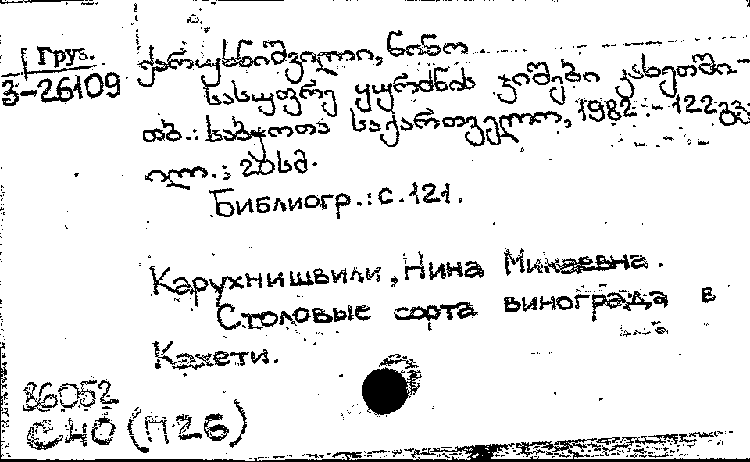 Груз.
3-26109
ქარუხნიშვილი, ნინო
სასუფრე ყურძნის ჯიშები კახეთში-
თბ.: საბჭოთა საქართველო, 1982.- 122გვ.
ილ.; 20სმ.
Библиогр.: с. 121.
Карухнишвили, Нина Михаевна.
Столовые сорта винограда в
Кахети.
86052
С40 (П26)